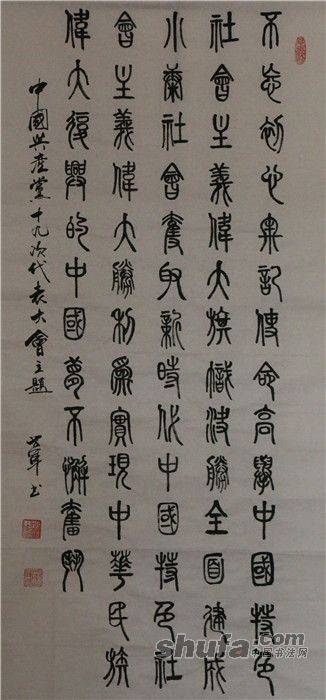 不忘初心牢記使命高舉中國特色
社會主義偉大旗幟決勝全面建成
小康社會奪取新時代中國特色社
會主義偉大勝利爲實現中華民族
偉大復興的中國夢不懈奮鬥
中國共產黨十九次代表大會主題
書
shufa.com
中国书法网